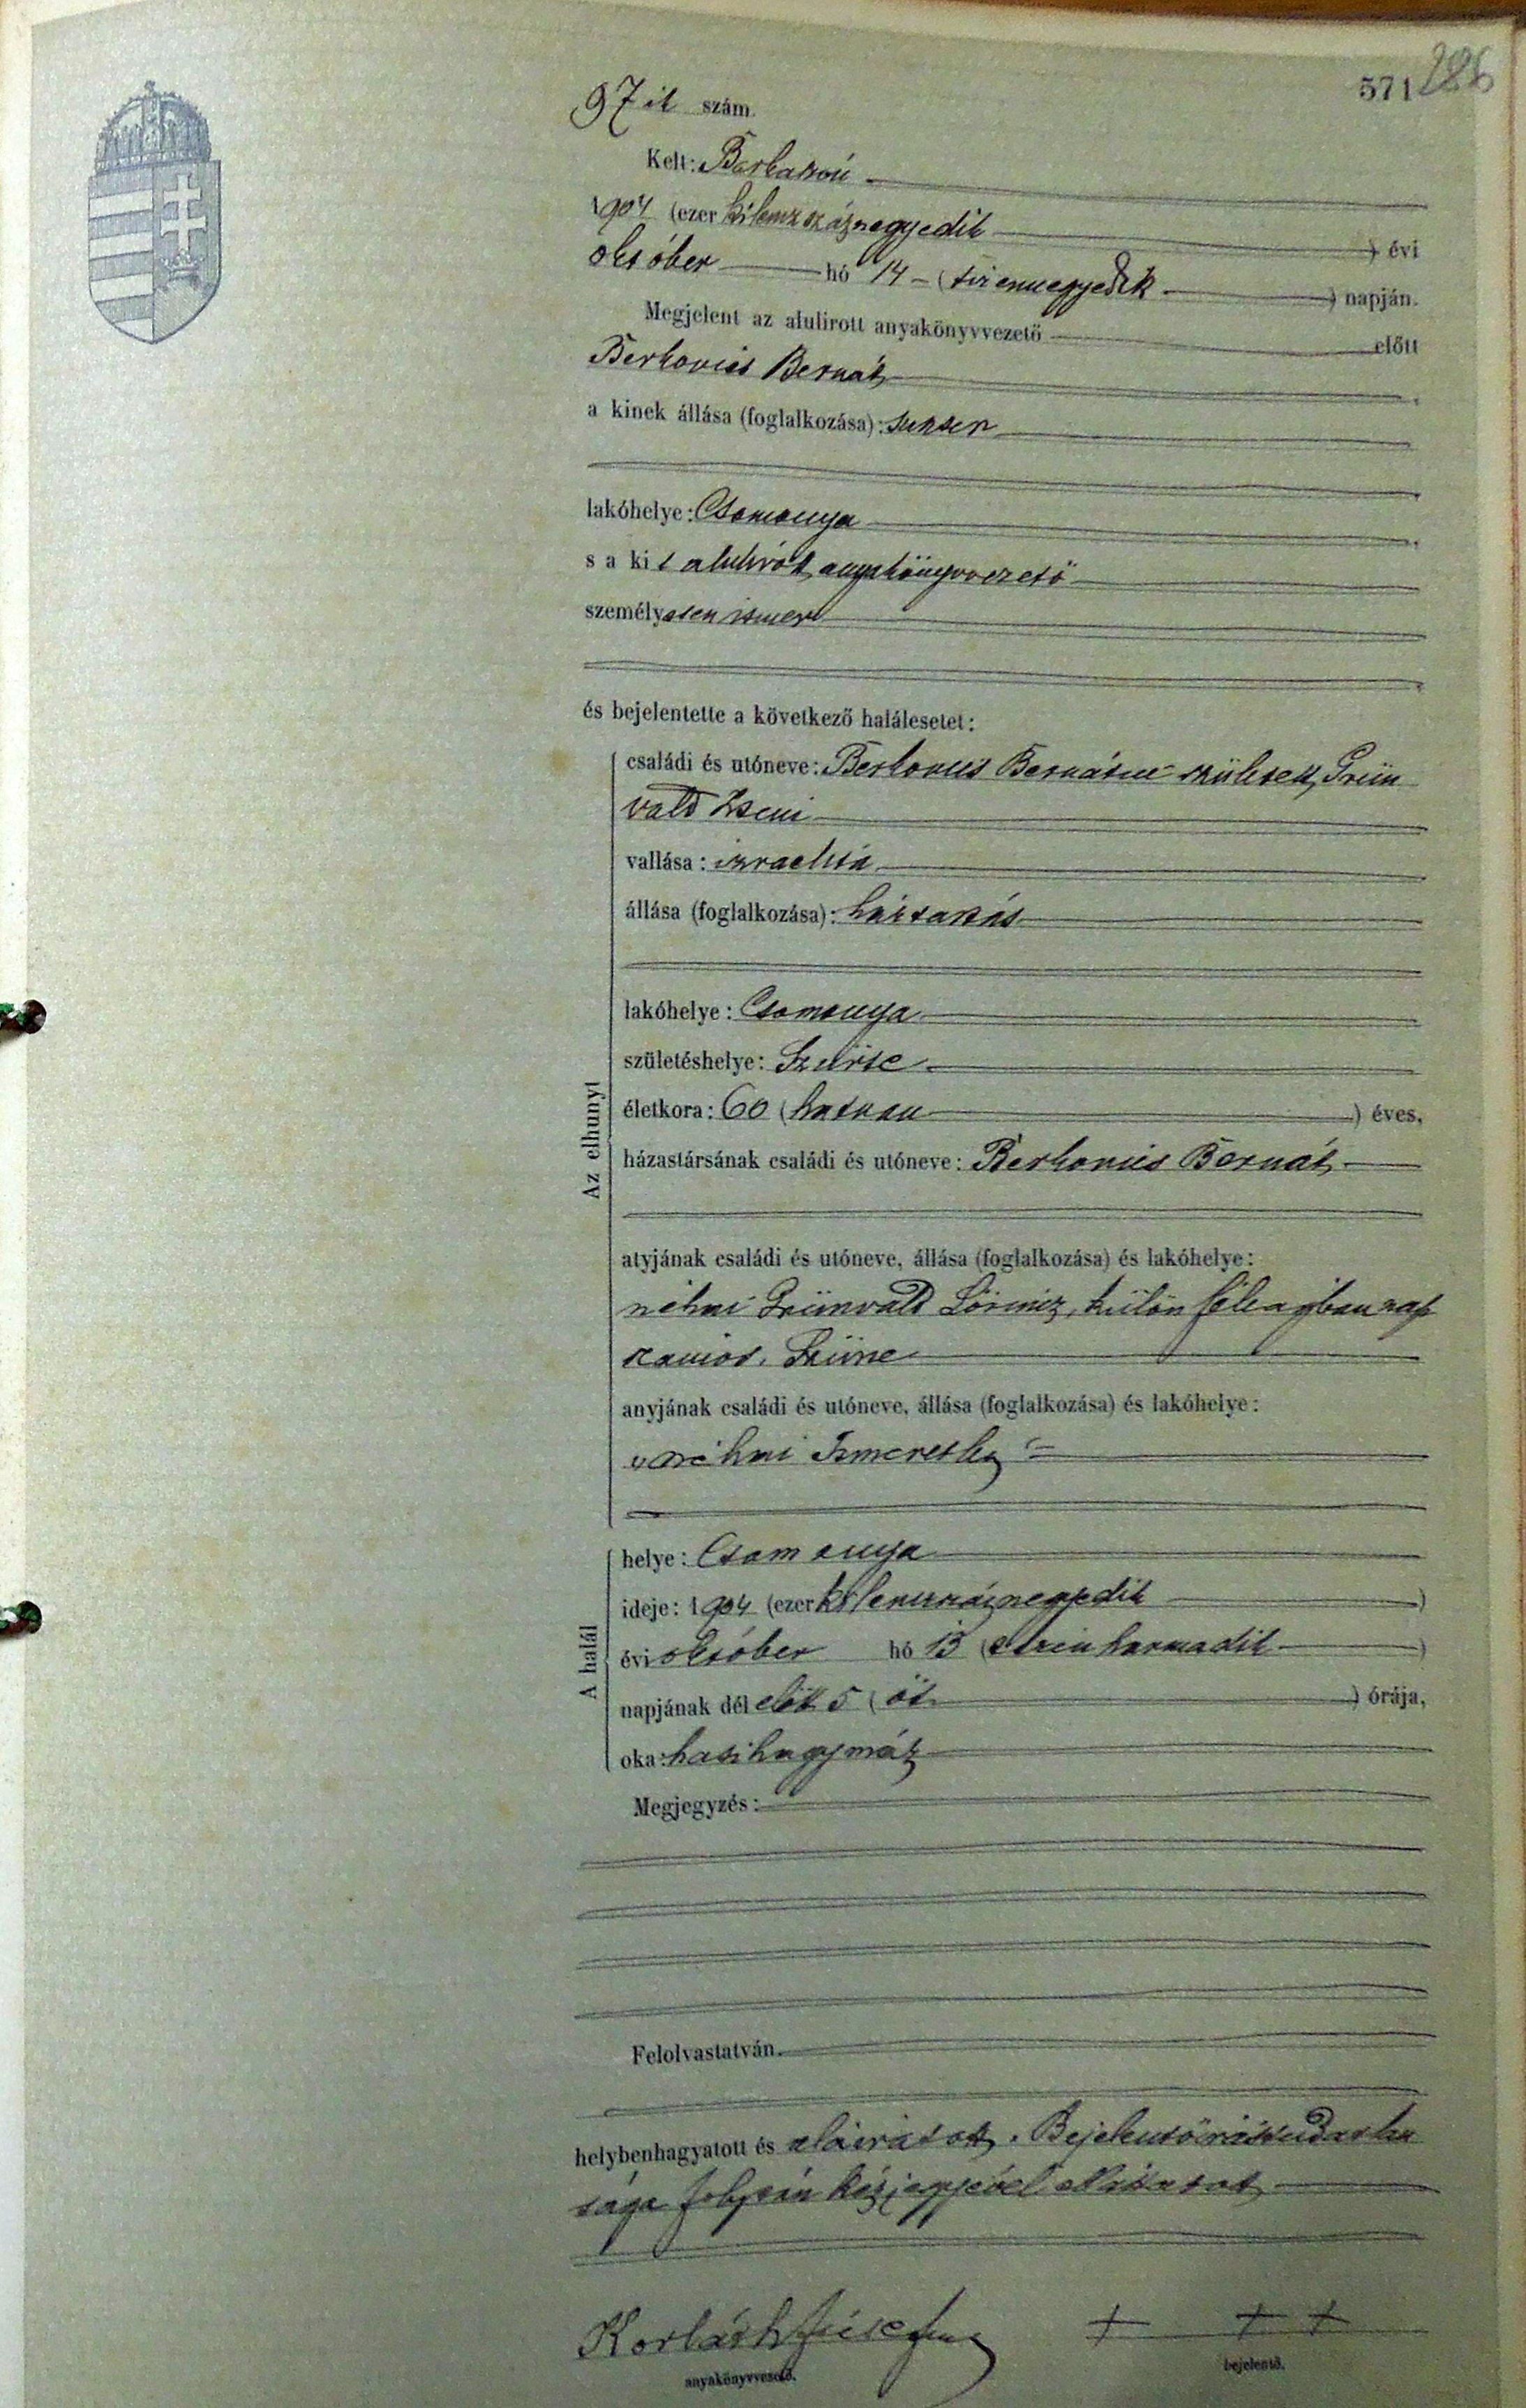 571 286
97ik szám.
Kelt: Barkaszó
1904 (ezer kilenczszáznegyedik ) évi
október hó 14 (tizennegyedik ) napján.
Megjelent az alulirott anyakönyvvezető előtt
Berkovics Bernát
a kinek állása (foglalkozása):
lakóhelye: Csomonya
s a kit alulirot anyakönyvvezető
személyesen ismer
és bejelentette a következő halálesetet:
Az elhunyt
családi és utóneve: Berkovics Bernátné született Grün
vald Zseni
vallása: izraelita
állása (foglalkozása): háztartás
lakóhelye: Csomonya
születéshelye: Szürte
életkora: 60 (hatvan ) éves,
házastársának családi és utóneve: Berkovics Bernát
atyjának családi és utóneve, állása (foglalkozása) és lakóhelye:
néhai Grünvald Lőrincz, külön féle ágban nap
számos. Szürte
anyjának családi és utóneve, állása (foglalkozása) és lakóhelye:
néhai Ismeretlen
A halál
helye: Csomonya
ideje: 1904 (ezer kilenczszáznegyedik )
évi október hó 13 (tizenharmadik )
napjának dél előtt 5 (öt ) órája,
oka: hasi hagymáz
Megjegyzés:
Felolvastatván.
helybenhagyatott és aláiratott. Bejelentő irástudatlan
sága folytán kézjegyével ellátatot
Korláth József
anyakönyvvezető.
+ + +
bejelentő.